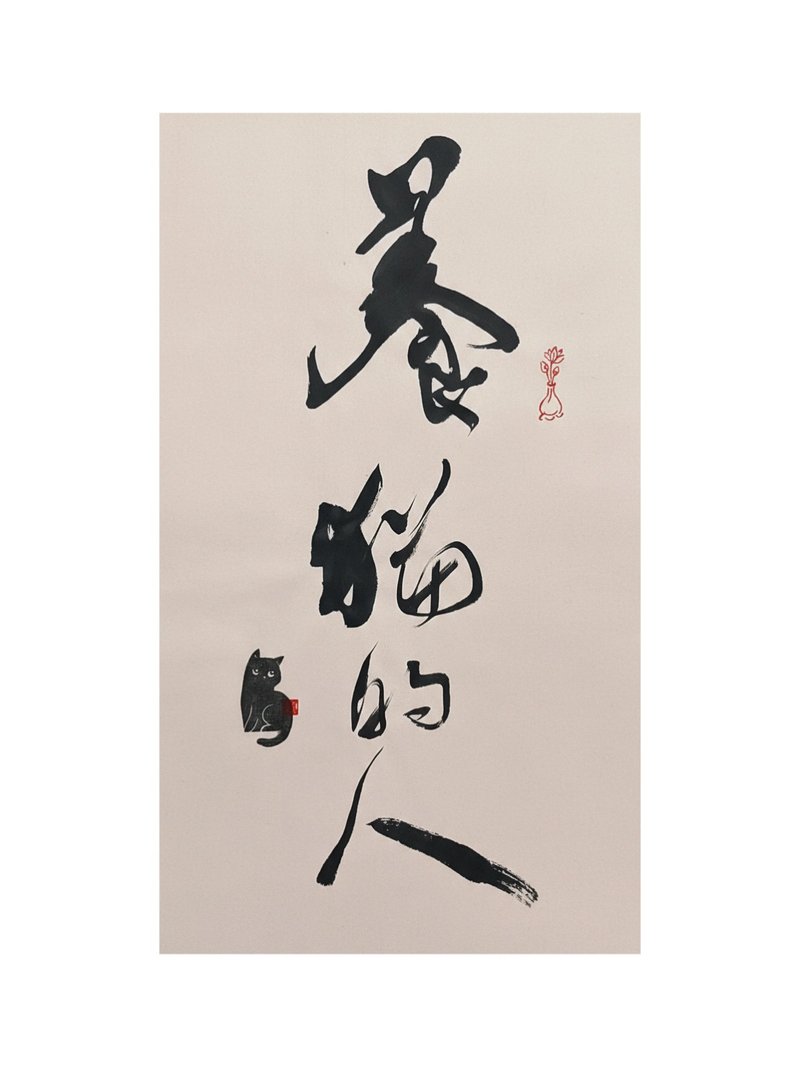 養貓的人